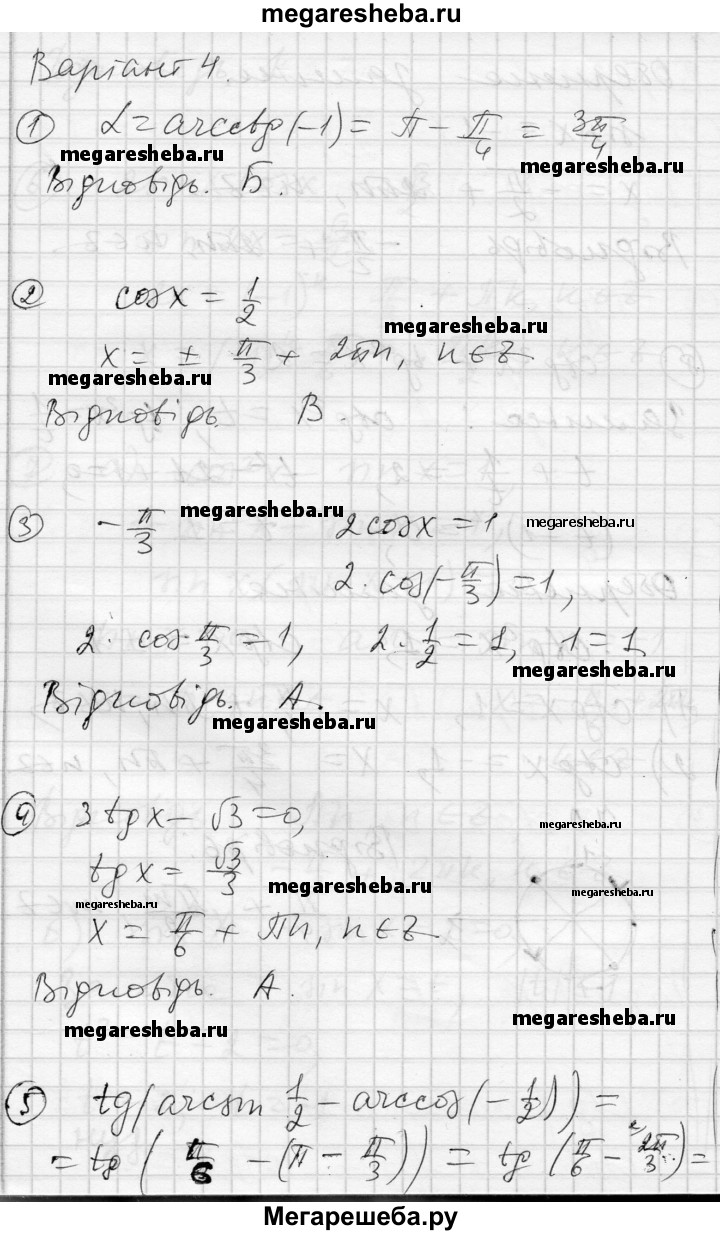 megaresheba.ru
Варіант 4.
① α = arcctg(-1) = π - π/4 = 3π/4
megaresheba.ru megaresheba.ru
Відповідь. Б.
② cos x = 1/2
megaresheba.ru
x = ± π/3 + 2πn, n ∈ Z
megaresheba.ru
Відповідь. В.
③ - π/3 megaresheba.ru 2cos x = 1 megaresheba.ru
2·cos(-π/3) = 1,
2·cos π/3 = 1, 2·1/2 = 1, 1 = 1
megaresheba.ru
Відповідь. А.
megaresheba.ru
④ 3tg x - √3 = 0,
megaresheba.ru
tg x = √3/3
megaresheba.ru megaresheba.ru megaresheba.ru
x = π/6 + πn, n ∈ Z
Відповідь. А.
megaresheba.ru megaresheba.ru
⑤ tg(arcsin 1/2 - arccos(-1/2)) =
= tg(π/6 - (π - π/3)) = tg(π/6 - 2π/3) =
Мегарешеба.ру